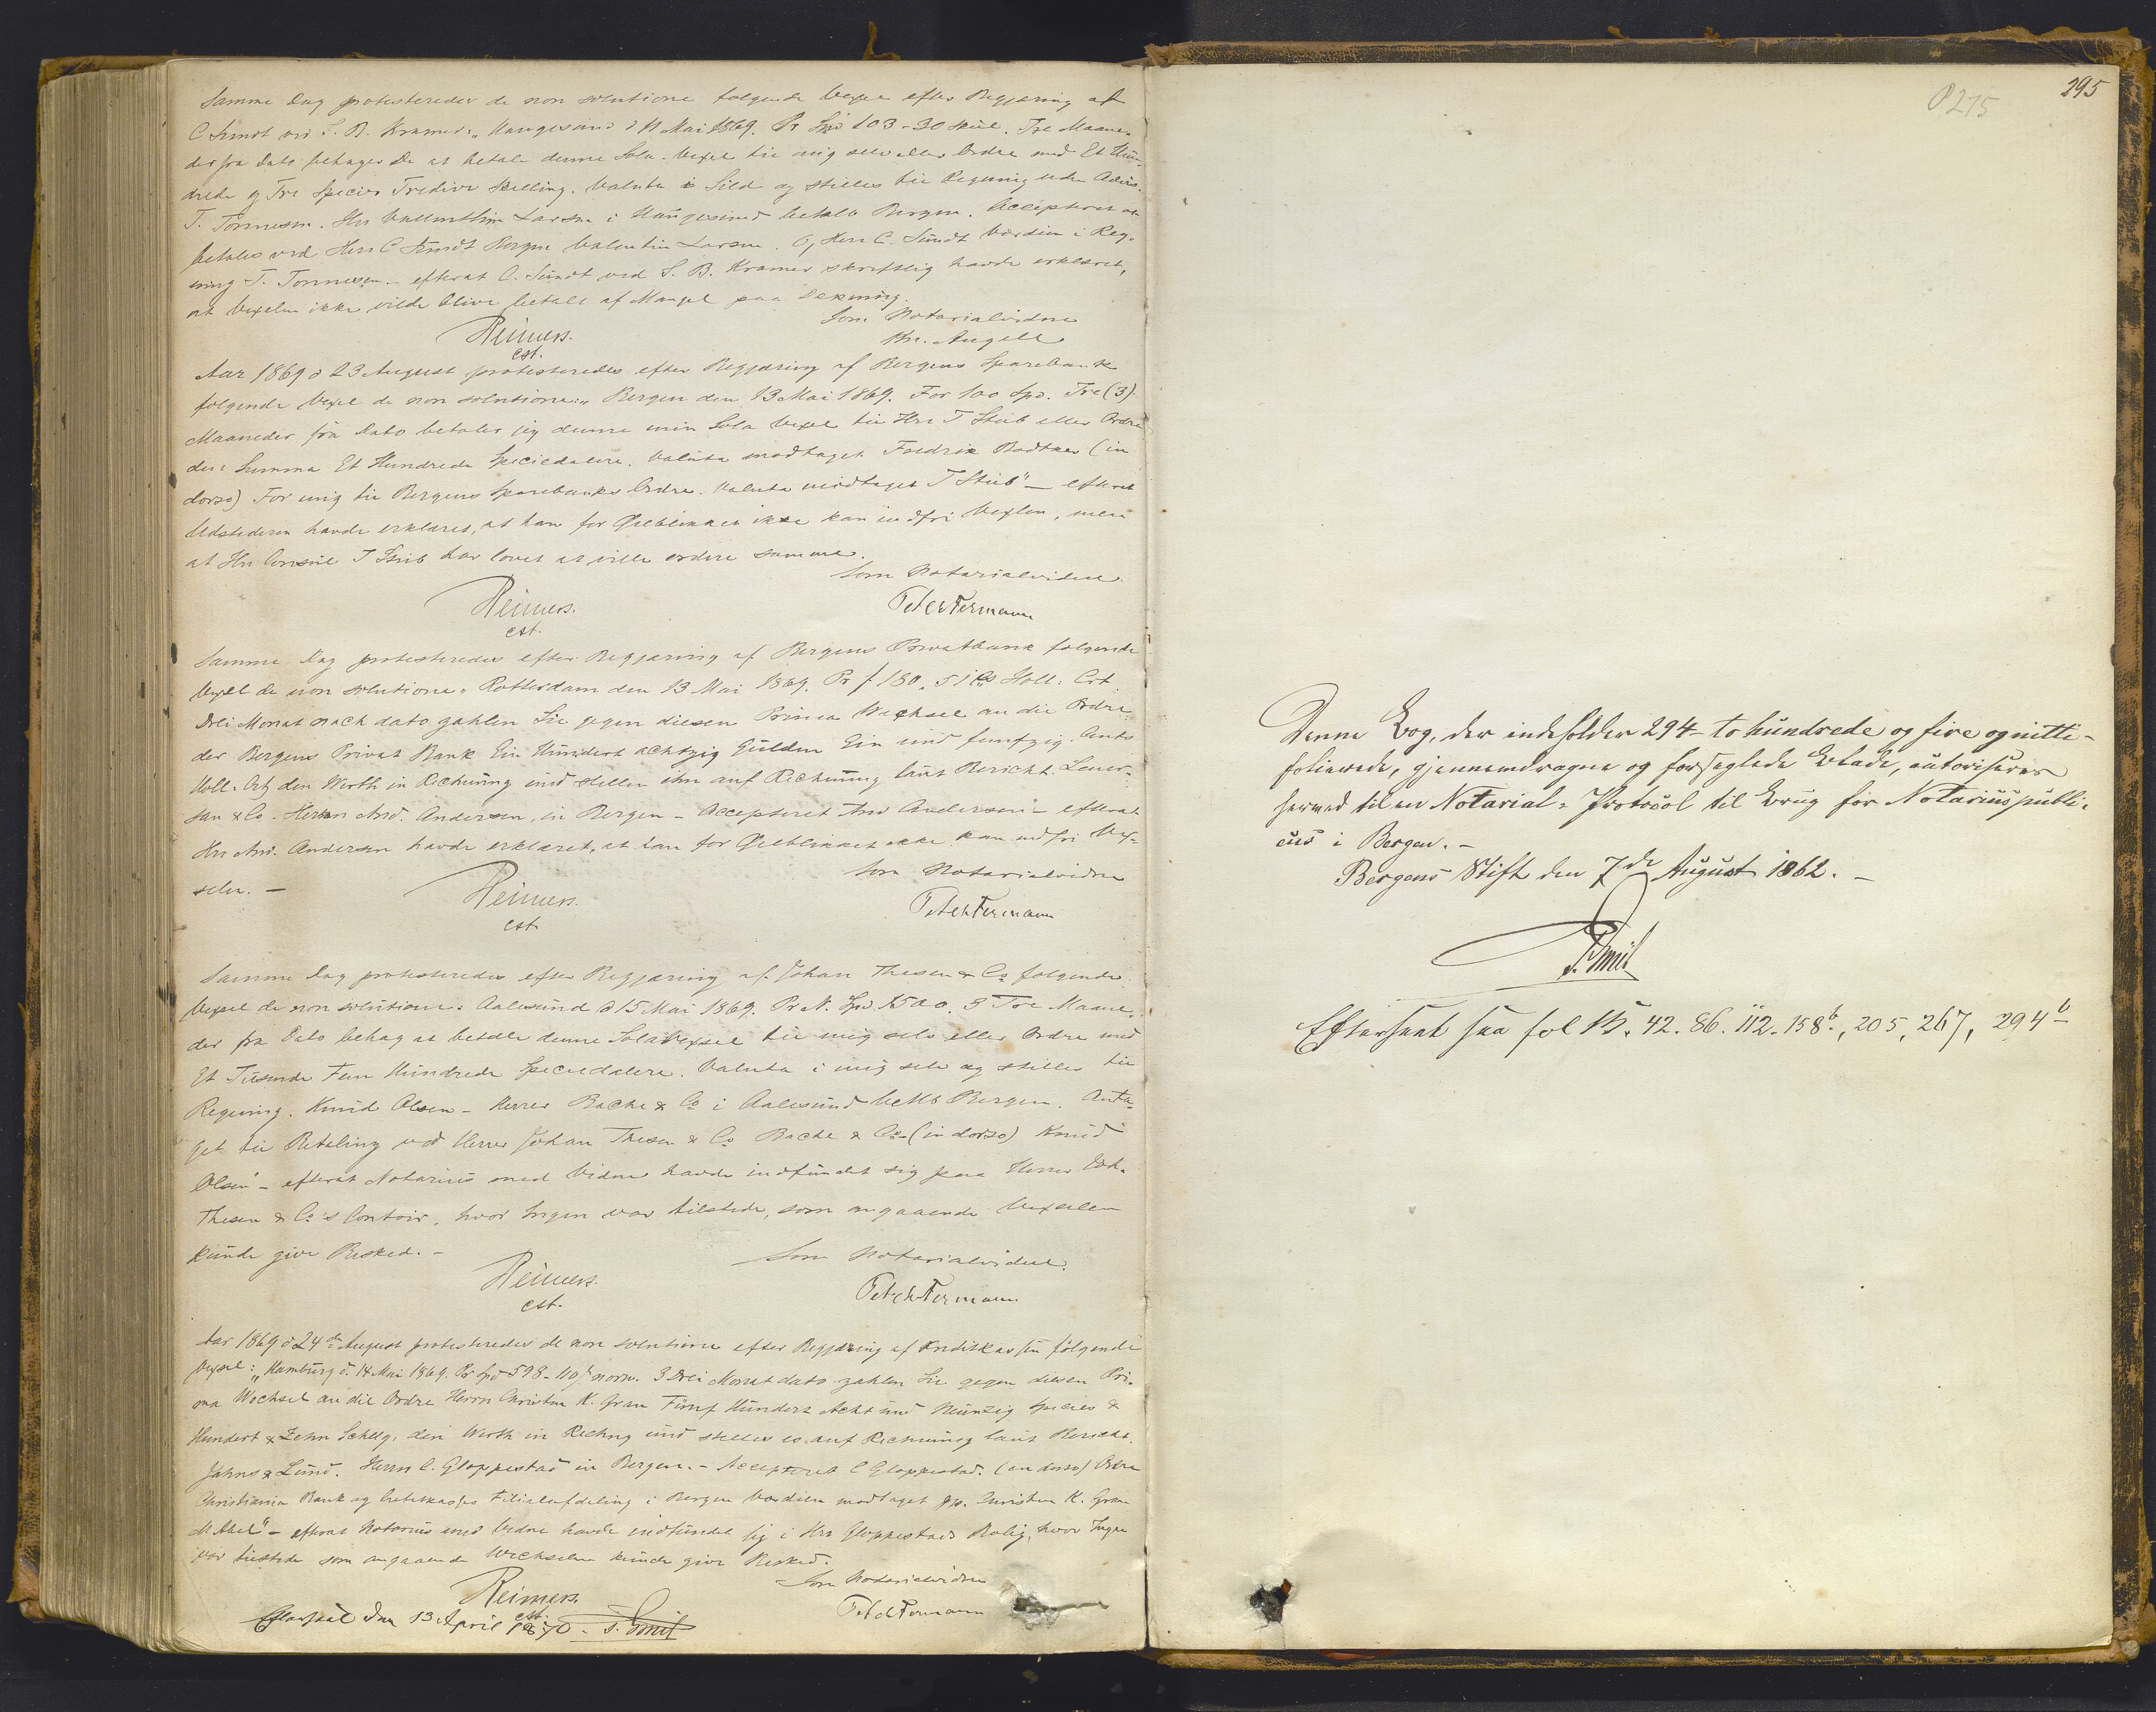 Samme Dag protesteredes de non solutione følgende Vexel efter Begjæring af
C Sundt ved S. B. Kramer: „Haugesund d 11 Mai 1869. Pr Spd 103 - 30 Skill. Tre Maane-
der fra Dato behager De at betale denne Sola-Vexel til mig selv eller Ordre med Et Hun-
drede og Tre Species Tredive Skilling. Valuta i Sild og stilles til Regning uden Advis.
T. Tønnesen. Hr Larsen i Haugesund betales Bergen. Accepteret
betales ved Herr C Sundt Bergen Valentin Larsen. Herr C. Sundt Værdien i Reg-
ning T. Tønnesen - efterat C. Sundt ved S. B. Kramer skriftlig havde erklæret,
at Vexelen ikke vilde blive betalt af Mangel paa Dekning.
Som Notarialvidne
Reimers. Angell
cst.
Aar 1869 d 23 August protesteredes efter Begjæring af Bergens Sparebank
følgende Vexel de non solutione: „Bergen den 13 Mai 1869. For 100 Spd. Tre (3)
Maaneder fra Dato betaler jeg denne min Sola Vexel til Hrr T Stub eller Ordre
den Summa Et Hundrede Speciedalere. Valuta modtaget. Fredrik Bødtker (in
dorso) For mig til Bergens Sparebanks Ordre. Valuta modtaget T Stub" - efterat
Udstederen havde erklæret, at han for Øieblikket ikke kan indfri Vexlen, men
at Hrr Consul T Stub har lovet at ville ordne samme.
Som Notarialvidne
Reimers. Peter Fermann
cst.
Samme Dag protesteredes efter Begjæring af Bergens Privatbank følgende
Vexel de non solutione „Rotterdam den 13 Mai 1869. Pr f 180, 51 Cs Holl: Crt.
Drei Monat nach dato zahlen Sie gegen diesen Prima Wechsel an die Ordre
der Bergens Privat Bank Ein Hundert achtzig Gulden Ein und funfzig Cents
Holl. Crt, den Werth in Rechnung und stellen ihn auf Rechnung laut Bericht.
& Co. Herrn And. Andersen, in Bergen - Accepteret And Andersen" - efterat
Hrr And. Andersen havde erklæret, at han for Øieblikket ikke kan indfri Vex-
selen. - Som Notarialvidne
Reimers. Peter Fermann
cst.
Samme Dag protesteredes efter Begjæring af Johan Thesen & Co følgende
Vexel de non solutione: Aalesund d 15 Mai 1869. Pr N. Spd 1500. 3 Tre Maane-
der fra Dato behag at betale denne Solavexel til mig selv eller Ordre med
Et Tusinde Fem Hundrede Speciedalere. Valuta i mig selv og stilles til
Regning. Knud Olsen - Herrer Bache & Co i Aalesund betlb Bergen. Anta-
get til Betaling ved Herrer Johan Thesen & Co Bache & Co - (in dorso) Knud
Olsen" - efterat Notarius med Vidne havde indfundet sig paa Herrer Joh.
Thesen & Co's Contoir, hvor Ingen var tilstede, som angaaende Vexselen
kunde give Besked. -
Som Notarialvidne.
Reimers. Peter Fermann
cst.
Aar 1869 d 24de August protesteredes de non solutione efter Begjæring af Kreditkassen følgende
Vexsel: „Hamburg d. 14 Mai 1869. Pr Spd 598 - 110 norw. 3 Drei Monat dato zahlen Sie gegen diesen Pri-
ma Wechsel an die Ordre Herrn Christen K. Gran Fünf Hundert Acht und Neunzig Species &
Hundert & Zehn Schillg. den Werth in Rechng und stellen es auf Rechnung laut Bericht.
Jahns & Lund. Herrn C. Gloppestad in Bergen. - Accepteret C Gloppestad. (in dorso) Ordre
Christiania Bank og Creditkasses Filialafdeling i Bergen Værdien modtaget pp. Christen K. Gran
M Abel" - efterat Notarius med Vidne havde indfundet sig i Hrr Gloppestads Bolig, hvor Ingen
var tilstede som angaaende Wechselen kunde give Besked.
Som Notarialvidne
Reimers. Peter Fermann
cst.
Efterseet den 13 April 1870. Smit
P. 275
295
Denne Bog, der indeholder 294 - to hundrede og fire og nitti -
folierede, gjennemdragne og forseglede Blade, autoriseres
herved til en Notarial-Protocol til Brug for Notarius publi-
cus i Bergen. -
Bergens Stift den 7de August 1862. -
Smit
Efterseet paa fol 15. 42. 86. 112. 158b, 205, 267, 294b